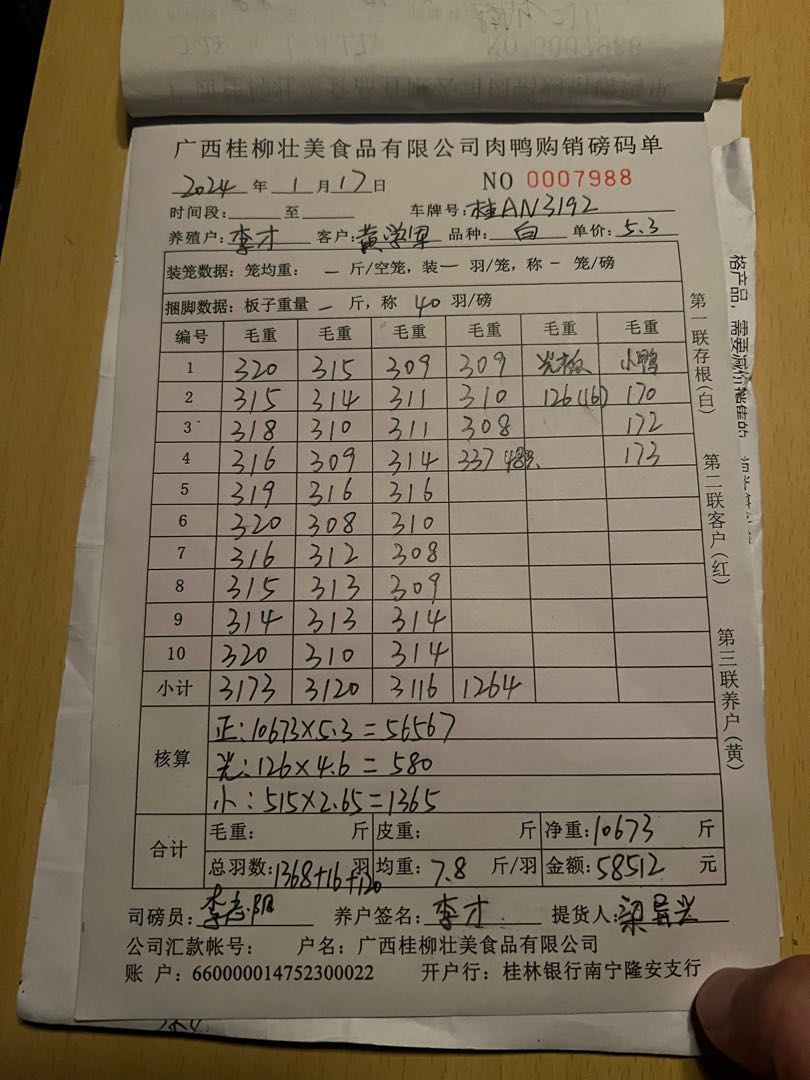 广西桂柳壮美食品有限公司肉鸭购销磅码单
2024 年 1 月 17 日 NO 0007988
时间段: 至 车牌号: 桂AN3192
养殖户: 李才 客户: 黄学军 品种: 白 单价: 5.3
装笼数据: 笼均重: — 斤/空笼, 装 — 羽/笼, 称 — 笼/磅
捆脚数据: 板子重量 — 斤, 称 40 羽/磅
编号 毛重 毛重 毛重 毛重 毛重 毛重
1 320 315 309 309 光板 小鸭
2 315 314 311 310 126(16) 170
3 318 310 311 308 172
4 316 309 314 337 48只 173
5 319 316 316
6 320 308 310
7 316 312 308
8 315 313 309
9 314 313 314
10 320 310 314
小计 3173 3120 3116 1264
核算
正: 10673×5.3=56567
光: 126×4.6=580
小: 515×2.65=1365
合计
毛重: 斤 皮重: 斤 净重: 10673 斤
总羽数: 1368+16+120 羽 均重: 7.8 斤/羽 金额: 58512 元
司磅员: 养户签名: 李才 提货人:
公司汇款帐号: 户名: 广西桂柳壮美食品有限公司
账 户: 660000014752300022 开户行: 桂林银行南宁隆安支行
第一联存根(白)
第二联客户(红)
第三联养户(黄)
格产品, 需要减价销售的